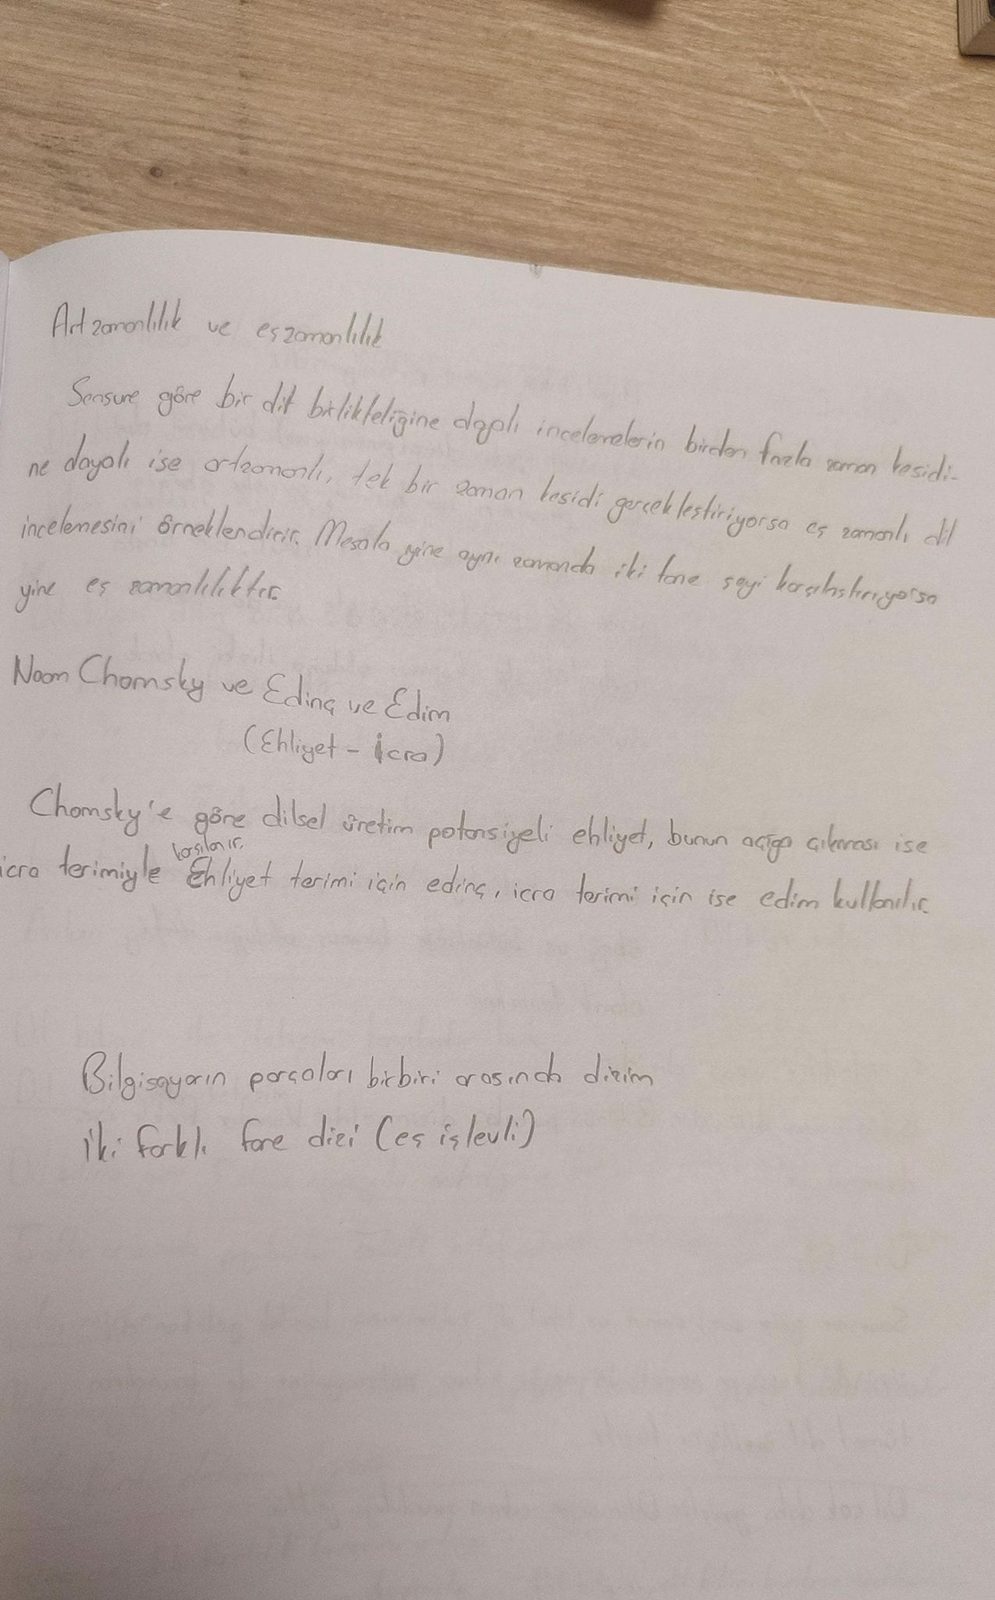 Artzamanlılık ve eşzamanlılık
Sensure göre bir dil birlikteliğine dayalı incelemelerin birden fazla zaman kesidi-
ne dayalı ise artzamanlı, tek bir zaman kesidi gerçekleştiriyorsa eş zamanlı dil
incelemesini örneklendirir. Mesala yine aynı zamanda iki tane şeyi karşılaştırıyorsa
yine eş zamanlılıktır.
Noam Chomsky ve Edinç ve Edim
(Ehliyet - İcra)
Chomsky'e göre dilsel üretim potansiyeli ehliyet, bunun açığa çıkması ise
icra terimiyle karşılanır. Ehliyet terimi için edinç, icra terimi için ise edim kullanılır.
Bilgisayarın parçaları birbiri arasında dizim
İki farklı fare dizi (eş işlevli)